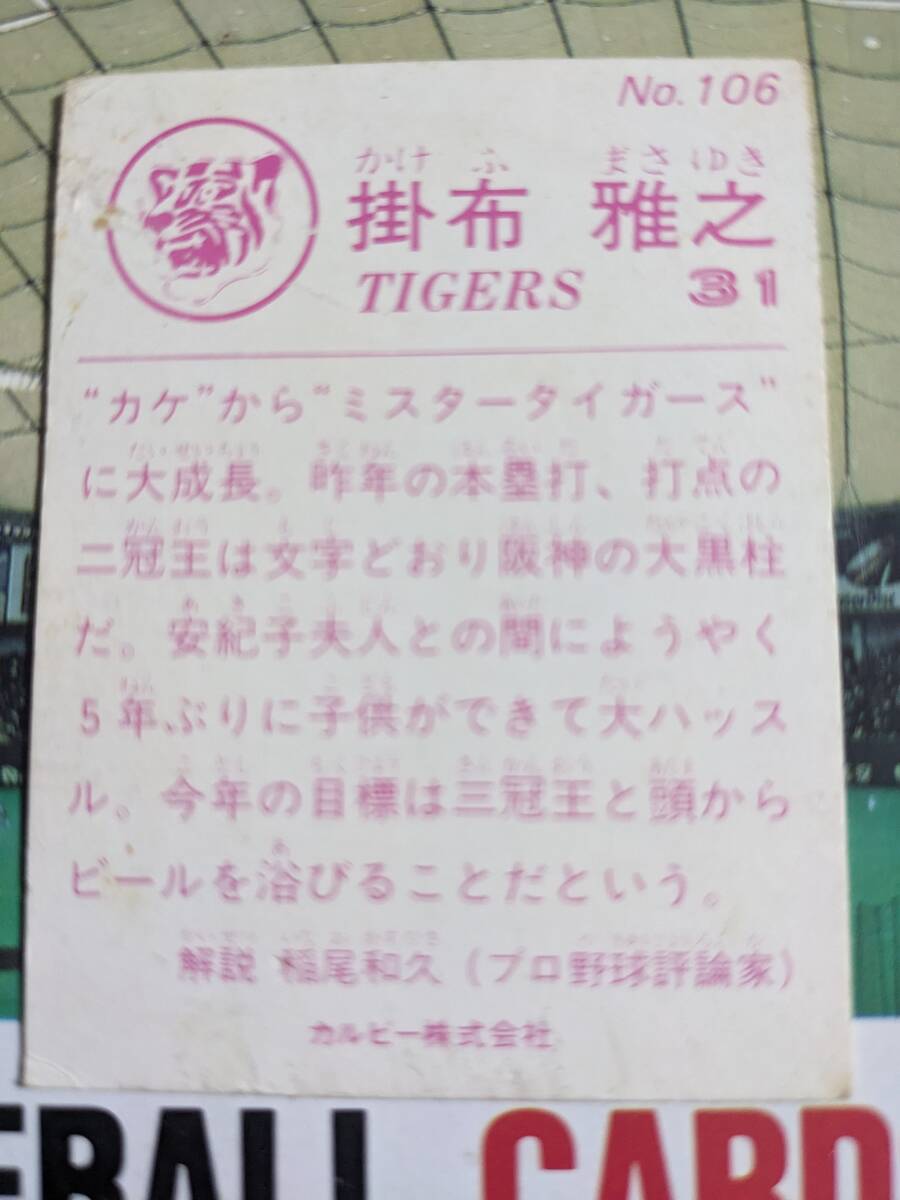 No. 106
かけ ふ まさ ゆき
掛布 雅之
TIGERS 31
“カケ”から“ミスタータイガース”
に大成長。昨年の本塁打、打点の
二冠王は文字どおり阪神の大黒柱
だ。安紀子夫人との間にようやく
5年ぶりに子供ができて大ハッス
ル。今年の目標は三冠王と頭から
ビールを浴びることだという。
解説 稲尾和久(プロ野球評論家)
カルビー株式会社
EBALL CARD